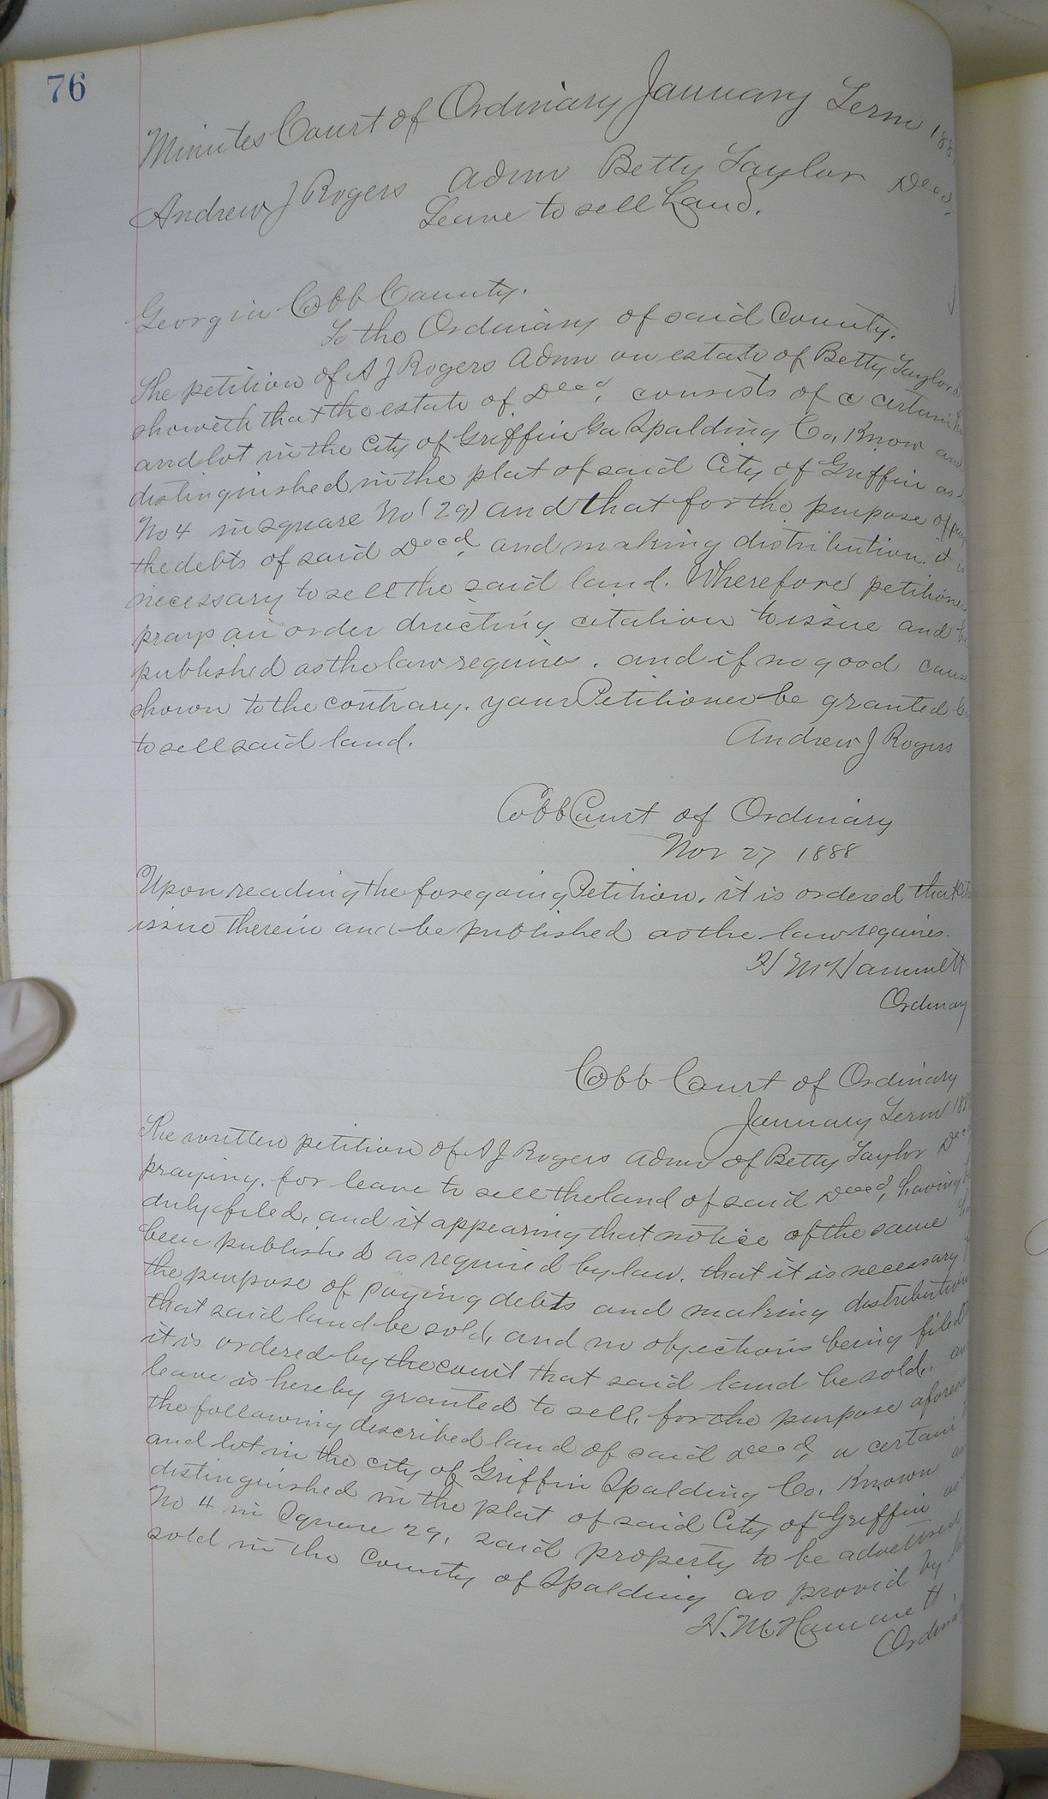 76
Minutes Court of Ordinary January Term
Andrew J Rogers Admr Betty Taylor Decd.
Leave to sell Land.
Georgia Cobb County.
To the Ordinary of said County.
The petition of A J Rogers Admr on estate of Betty Taylor
showeth that the estate of Decd, consists of a certain
and lot in the City of Griffin Ga Spalding Co, Know and
distinguished in the plat of said City of Griffin as
No 4 in square No (29) and that for the purpose of
the debts of said Decd, and making distribution. it is
necessary to sell the said land. Wherefore petitioner
prays an order directing citation to issue and be
published as the law requires. and if no good cause
shown to the contrary. your Petitioner be granted
to sell said land.
Andrew J Rogers
Cobb Court of Ordinary
Nov 27 1888
Upon reading the foregoing Petition. it is ordered that
issue therein and be published as the law requires.
H M Hammett
Ordinary
Cobb Court of Ordinary
January Term
The written petition of A J Rogers Admr of Betty Taylor Decd
praying. for leave to sell the land of said Decd, having
duly filed, and it appearing that notice of the same
been published as required by law. that it is necessary
the purpose of paying debts and making distribution
that said land be sold, and no objections being filed
it is ordered by the court that said land be sold,
leave is hereby granted to sell, for the purpose
the following described land of said Decd, a certain
and lot in the city of Griffin Spalding Co. Known
distinguished in the plat of said City of Griffin as
No 4 in Square 29, said property to be advertised
sold in the County of Spalding as provid by
H. M. Hammett
Ordinary